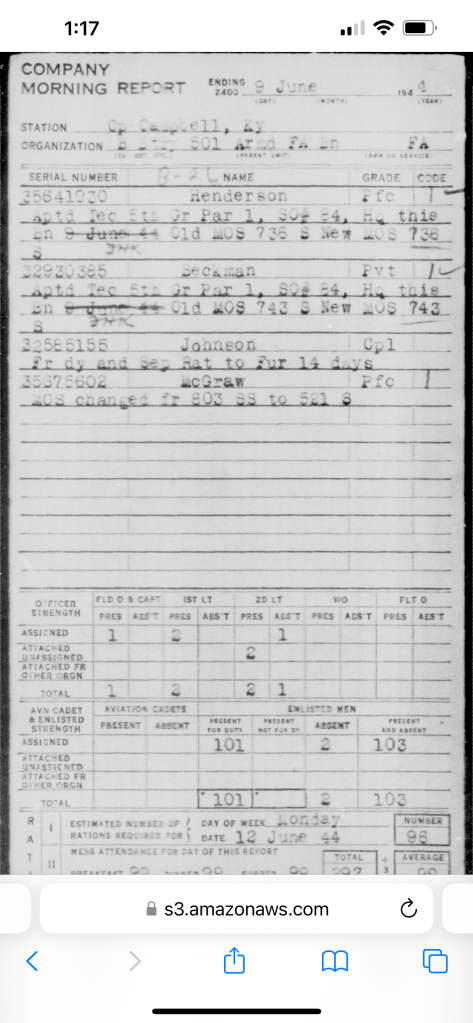 1:17
COMPANY
MORNING REPORT ENDING 2400 9 June 194 4
(DAY) (MONTH) (YEAR)
STATION Cp Campbell, Ky
ORGANIZATION B Btry 501 Armd FA Bn FA
(PARENT UNIT) (ARM OR SERVICE)
SERIAL NUMBER NAME GRADE CODE
35641930 Henderson Pfc
Aptd Tec 5th Gr Par 1, SO# 84, Hq this
Bn 9 June 44 Old MOS 736 S New MOS 736
S
32930385 Beckman Pvt
Aptd Tec 5th Gr Par 1, SO# 84, Hq this
Bn 9 June 44 Old MOS 743 S New MOS 743
S
32585155 Johnson Cpl
Fr dy and Sep Rat to Fur 14 days
35675602 McGraw Pfc
MOS changed fr 803 SS to 521 S
OFFICER STRENGTH FLD O & CAPT 1ST LT 2D LT WO FLT O
PRES ABS'T PRES ABS'T PRES ABS'T PRES ABS'T PRES ABS'T
ASSIGNED 1 2 1
ATTACHED UNASSIGNED 2
ATTACHED FR OTHER ORGN
TOTAL 1 2 2 1
AVN CADET & ENLISTED STRENGTH AVIATION CADETS ENLISTED MEN
PRESENT ABSENT PRESENT FOR DUTY PRESENT NOT FOR DY ABSENT PRESENT AND ABSENT
ASSIGNED 101 2 103
ATTACHED UNASSIGNED
ATTACHED FR OTHER ORGN
TOTAL 101 2 103
R I ESTIMATED NUMBER OF RATIONS REQUIRED FOR DAY OF WEEK Monday NUMBER
A DATE 12 June 44 96
T II MESS ATTENDANCE FOR DAY OF THIS REPORT TOTAL ÷ 3 AVERAGE
BREAKFAST DINNER SUPPER 297
s3.amazonaws.com